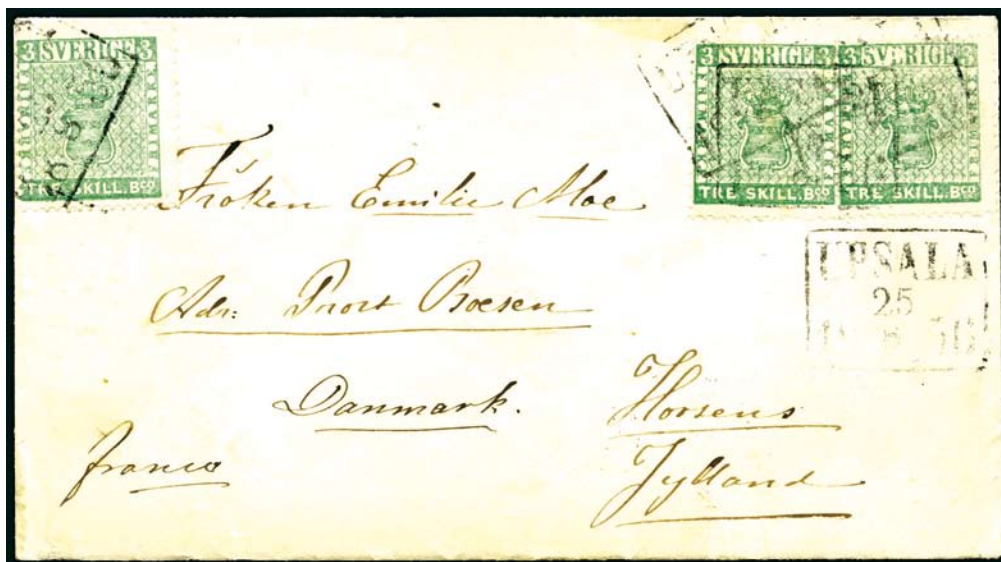 3 SVERIGE 3
TRE SKILL. Bco
3 SVERIGE 3
TRE SKILL. Bco
3 SVERIGE 3
TRE SKILL. Bco
UPSALA
25
Fröken Emilie Moe
Adr: Prost Boesen
Danmark.
Horsens
Jylland
franco